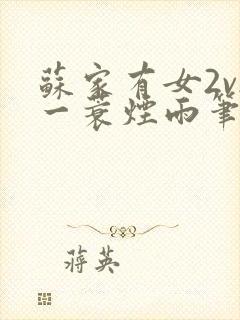 蘇家有女2v
一蓑煙雨筆
蔣英